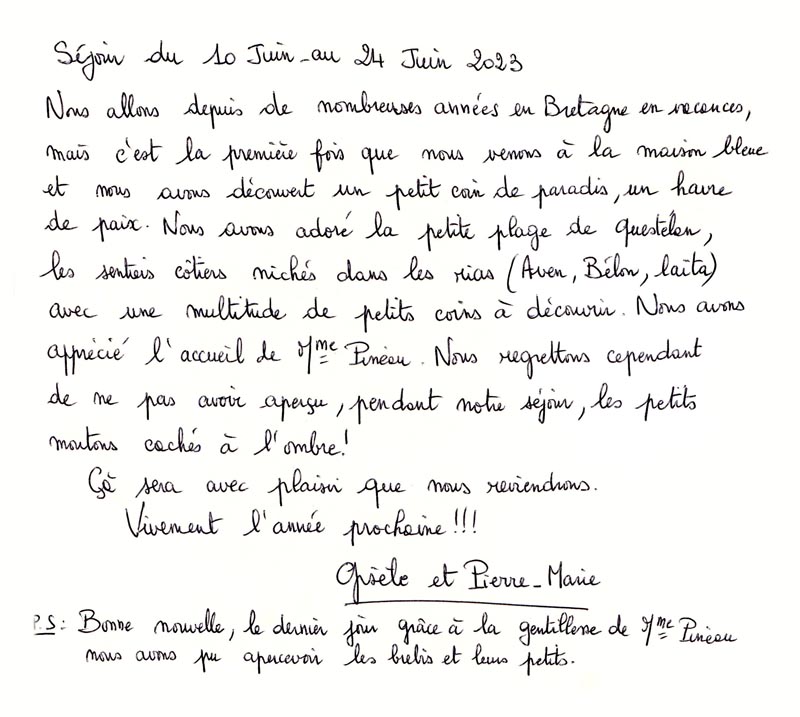 Séjour du 10 Juin-au 24 Juin 2023
Nous allons depuis de nombreuses années en Bretagne en vacances,
mais c'est la première fois que nous venons à la maison bleue
et nous avons découvert un petit coin de paradis, un havre
de paix. Nous avons adoré la petite plage de Questélan,
les sentiers côtiers nichés dans les rias (Aven, Bélon, laïta)
avec une multitude de petits coins à découvrir. Nous avons
apprécié l'accueil de Mme Pinéau. Nous regrettons cependant
de ne pas avoir aperçu, pendant notre séjour, les petits
moutons cachés à l'ombre!
Çà sera avec plaisir que nous reviendrons.
Vivement l'année prochaine!!!
Gisèle et Pierre-Marie
P.S: Bonne nouvelle, le dernier jour grâce à la gentillesse de Mme Pinéau
nous avons pu apercevoir les brebis et leurs petits.